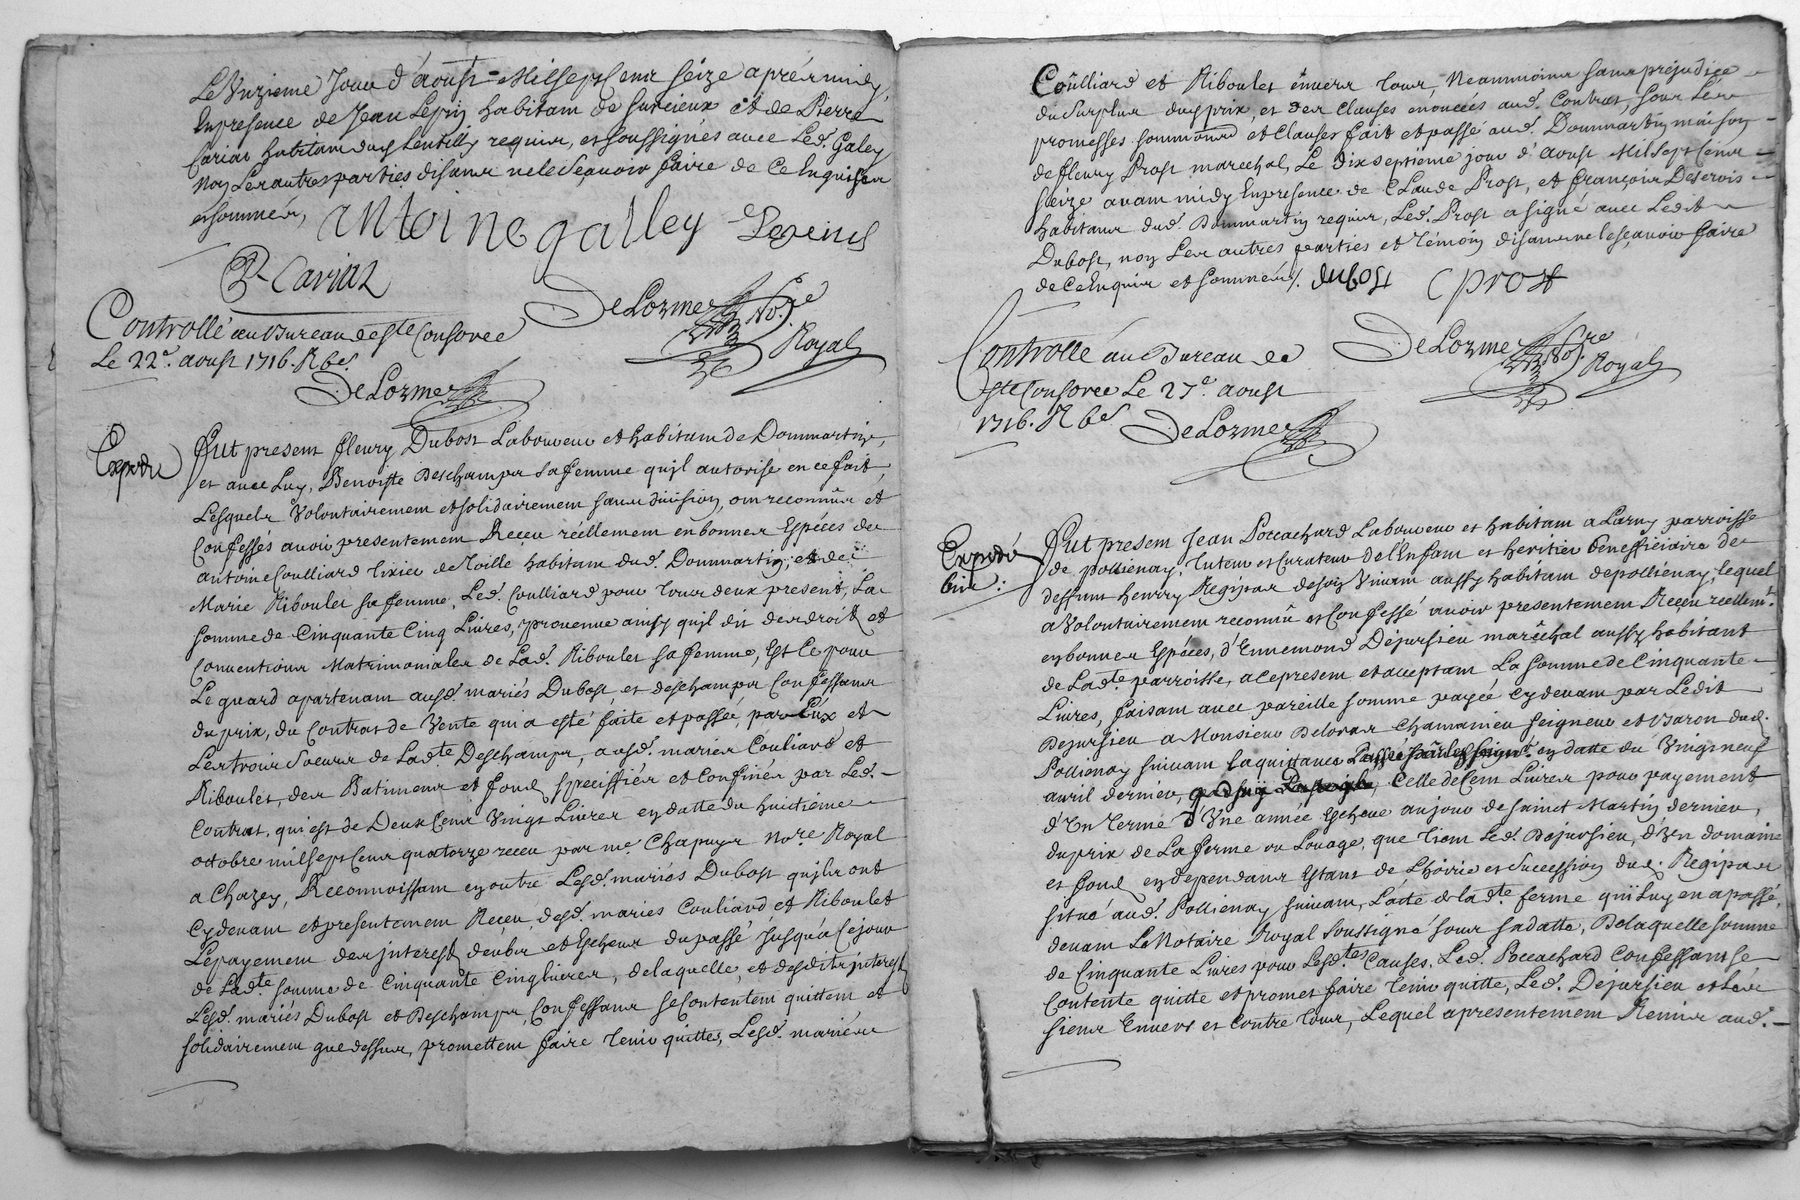 Le Unzieme Jour d'aoust Mil sept Cent seize aprés midy,
En presence de Jean Lepin habitant de Sarcieux et de Pierre
Cariat habitant dud. Lentilly requis, et soussignés avec Led. Galey
Non Les autres parties disans ne le Sçavoir faire de Ce Enquises
et sommées,
antoine galley
P. Cariat
DeLorme No.re Royal
Controllé au Bureau de Ste Consorce
Le 22e. aoust 1716. R 6s.
DeLorme
Expedié
Fut present fleury Dubost Laboureur et habitant de Dommartin,
et avec Luy, Benoiste Deschamps sa femme qu'jl autorise en ce fait,
Lesquels Volontairement et solidairement sans division, ont reconnûs et
Confessés avoir presentement Reçeu réellement en bonnes Espéces de
antoine Coulliard Tixier de Toille habitant dud. Dommartin, et de
Marie Riboulet sa femme, Led. Coulliard pour Tous deux present, La
somme de Cinquante Cinq Livres, provenue ainsy qu'jl dit des droits et
Conventions Matrimoniales de Lad. Riboulet sa femme, Est Ce pour
Le quard apartenant ausd. mariés Dubost, et deschamps Confessans
du prix, du Contrat de Vente qui a esté faite et passée, par Eux et
Les trois Soeurs de Lad.te Deschamps, ausd. mariés Couliard et
Riboulet, des Batimens et fond speciffiés et Confinés par Led.
Contrat, qui est de Deux Cent Vingt Livres en datte du huictiéme
octobre mil sept Cent quatorze receu par me. Chapuys No.re Royal
a Chazey, Reconnoissant en outre Lesd. mariés Dubost qu'jls ont
Cy devant et presentement Reçeu, desd. mariés Couliard et Riboulet
Le payement des jnterest deubs et Escheus du passé jusqu'a Ce jour
de Lad.te somme de Cinquante Cinq Livres, de laquelle, et desdits jnterest
Lesd. mariés Dubost et Deschamps, Confessans se Contentent quittent et
solidairement que dessus, promettent faire Tenir quittes, Lesd. mariés
Coulliard et Riboulet envers Tous, Neanmoins sans prejudice
du Surplus dud. prix, et des Clauses enoncés aud. Contrat, sous Les
promesses et Clauses fait et passé aud. Dommartin maison
de fleury Prost marechal, Le dix septiéme jour d'aoust Mil sept Cent
seize avant midy En presence de Claude Prost, et françois
habitans dud. Dommartin requis, Led. Prost a signé avec Ledit
Dubost, non Les autres parties et Témoin disans ne le sçavoir faire
de Ce Enquis et sommés/. dubost C prost
DeLorme No.re Royal
Controllé au Bureau de
Ste Consorce Le 27e aoust
1716. R 6s
DeLorme
Expedié
Fut present Jean Poccachard Laboureur et habitant a Larny parroisse
de pollienay, Tuteur et Curateur de l'Enfant et heritier beneffiçiaire de
deffunt henry Regipas de son Vivant aussy habitant de pollienay, lequel
a Volontairement reconnû et Confessé avoir presentement Reçeu réellemt.
en bonnes Espéces, d'Ennemond Dejursieu maréchal aussy habitant
de Lad.te parroisse, a ce present et acceptant La somme de Cinquante
Livres, faisant avec pareille somme payée Cy devant par Ledit
Dejursieu a Monsieur Deloras Chamanieu seigneur et Baron dud.
Pollienay suivant la quittance en datte du Vingt neuf
avril dernier, Celle de Cent Livres pour payement
d'Un Terme d'Une année Escheue au jour de saint Martin dernier,
du prix de La ferme ou Louage, que Tient Led. Dejursieu, d'Un domaine
et fond en dependans Estant de l'hoirie et Succession dud. Regipas
situé aud. Pollienay suivant, l'acte de lad.te ferme qu'il luy en a passé,
devant Le Notaire Royal soussigné sous sa datte, De laquelle somme
de Cinquante Livres pour Lesd.tes Causes, Led. Poccachard Confessant se
Contente quitte et promet faire Tenir quitte, Led. Dejursieu et Les
siens Envers et Contre Tous, Lequel a presentement Remis aud.